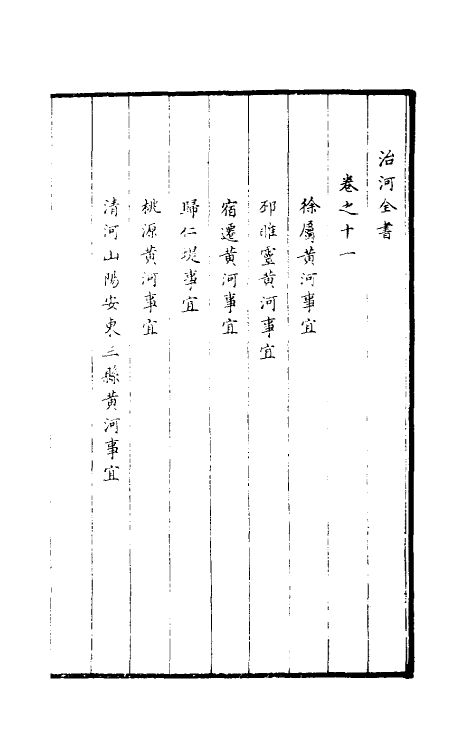 治河全書
卷之十一
徐屬黃河事宜
邳睢靈黃河事宜
宿遷黃河事宜
歸仁堤事宜
桃源黃河事宜
清河山陽安東三縣黃河事宜